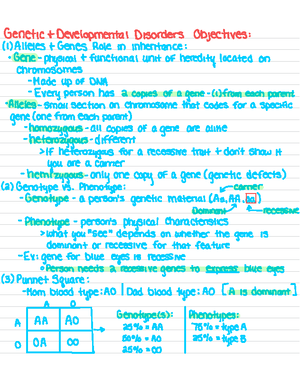 Genetic + Developmental Disorders Objectives:
(1) Alleles + Genes Role in inheritance:
- Gene - physical + functional unit of heredity located on
chromosomes
- Made up of DNA
- Every person has 2 copies of a gene - (1) from each parent
- Alleles - small section on chromosome that codes for a specific
gene (one from each parent)
- homozygous - all copies of a gene are alike
- heterozygous - different
> If heterozygous for a recessive trait + don't show it
you are a carrier
- hemizygous - only one copy of a gene (genetic defects)
(2) Genotype vs. Phenotype: carrier
- Genotype - a person's genetic material (Aa, AA, aa)
Dominant recessive
- Phenotype - person's physical characteristics
> what you "see" depends on whether the gene is
dominant or recessive for that feature
- Ex: gene for blue eyes is recessive
Person needs 2 recessive genes to express blue eyes
(3) Punnet Square:
- Mom blood type: AO | Dad blood type: AO [A is dominant]
A O
A AA AO
O OA OO
Genotype(s):
25% = AA
50% = AO
25% = OO
Phenotypes:
75% = type A
25% = type B